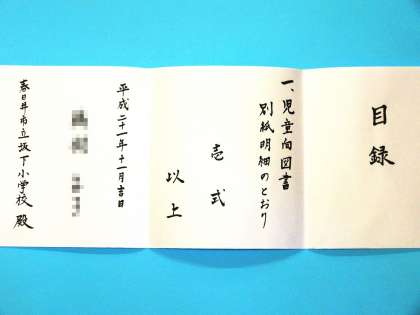 目録
一、児童向図書
別紙明細のとおり
壱式
以上
平成二十一年十一月吉日
春日井市立坂下小学校 殿